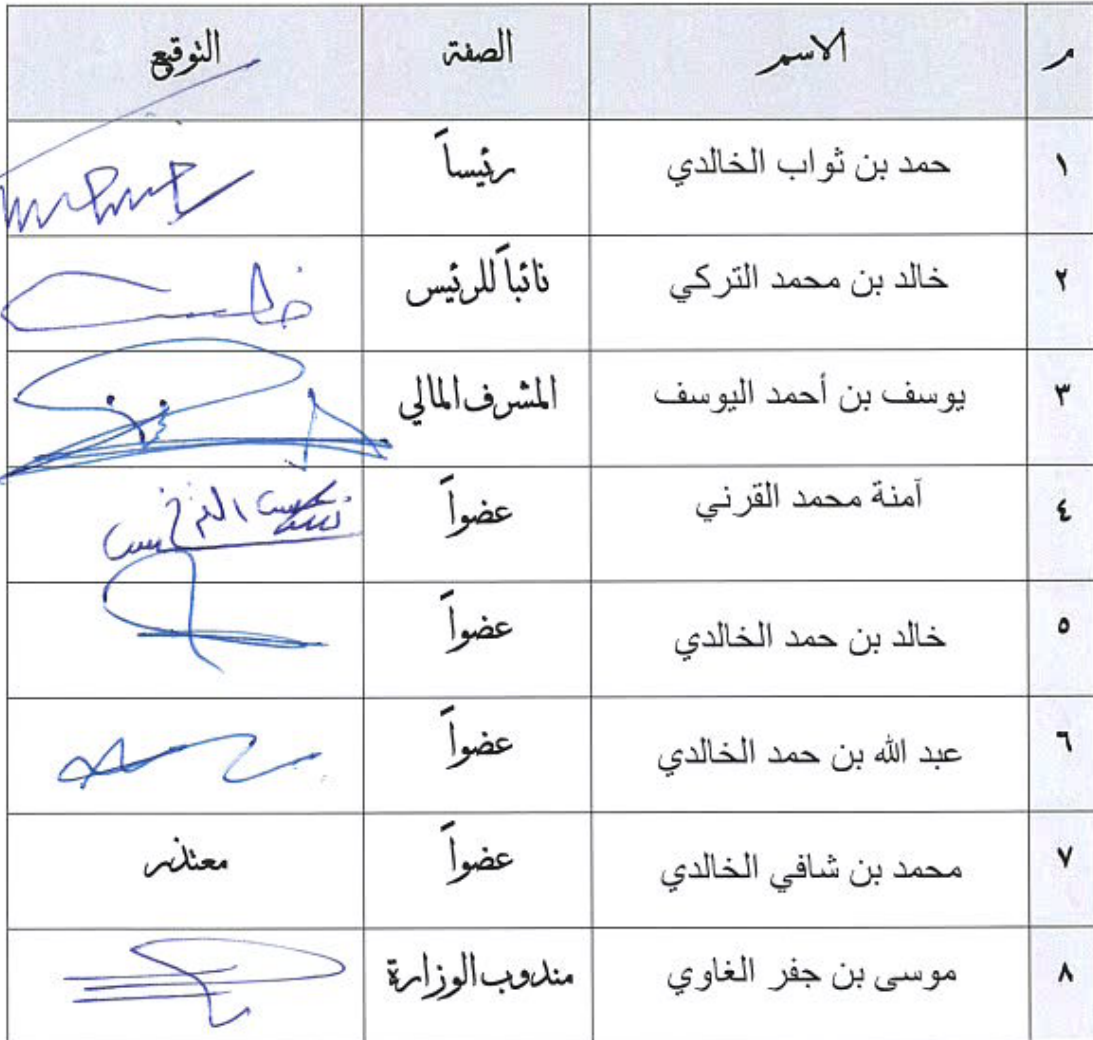 م الاسم الصفة التوقيع
١ حمد بن ثواب الخالدي رئيساً
٢ خالد بن محمد التركي نائباً للرئيس
٣ يوسف بن أحمد اليوسف المشرف المالي
٤ آمنة محمد القرني عضواً
٥ خالد بن حمد الخالدي عضواً
٦ عبد الله بن حمد الخالدي عضواً
٧ محمد بن شافي الخالدي عضواً معتذر
٨ موسى بن جفر الغاوي مندوب الوزارة